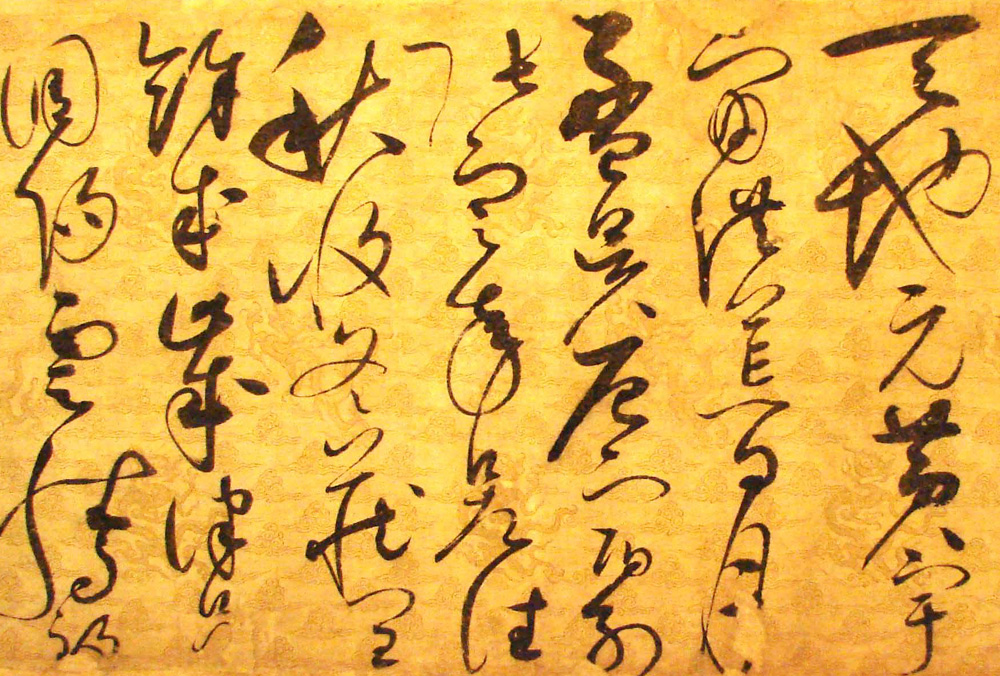 天地元黃宇
宙洪荒日月
盈昃辰宿列
張寒來暑往
秋收冬藏閏
餘成歲律呂
調陽雲騰致